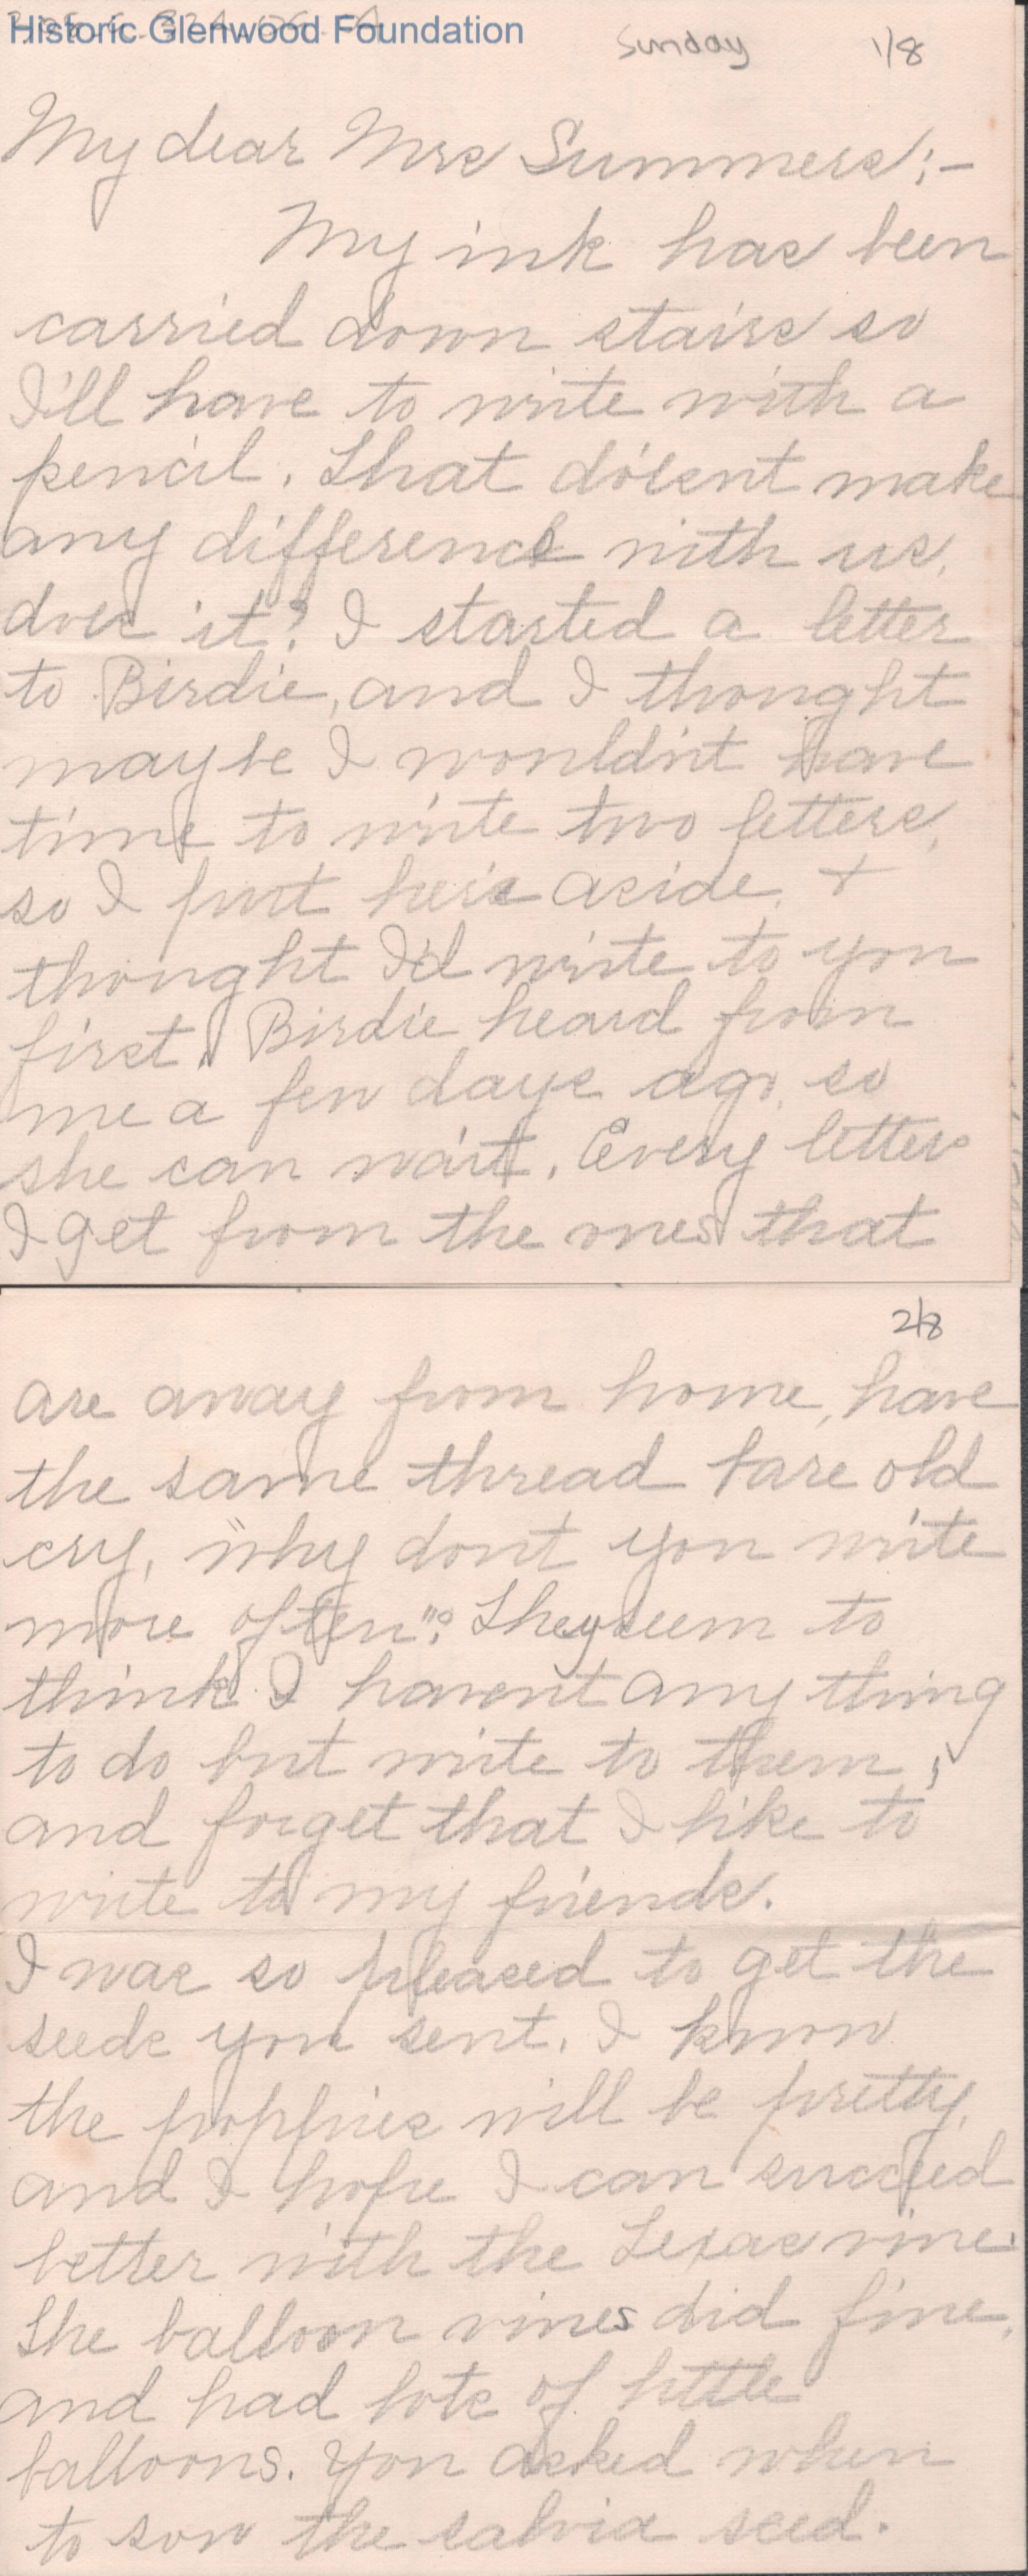 Historic Glenwood Foundation
Sunday 1/8
My dear Mrs Summers:-
My ink has been
carried down stairs so
I'll have to write with a
pencil. That doesent make
any difference with us,
does it? I started a letter
to Birdie, and I thought
maybe I wouldn't have
time to write two letters,
so I put her's aside, +
thought I'd write to you
first. Birdie heard from
me a few days ago, so
she can wait. Every letter
I get from the ones that
2/8
are away from home, have
the same thread bare old
cry, "why dont you write
more often"? They seem to
think I havent any thing
to do but write to them,
and forget that I like to
write to my friends.
I was so pleased to get the
seeds you sent. I know
the poppies will be pretty,
and I hope I can succeed
better with the Texas vine.
The balloon vines did fine,
and had lots of little
balloons. You asked when
to sow the salvia seed.